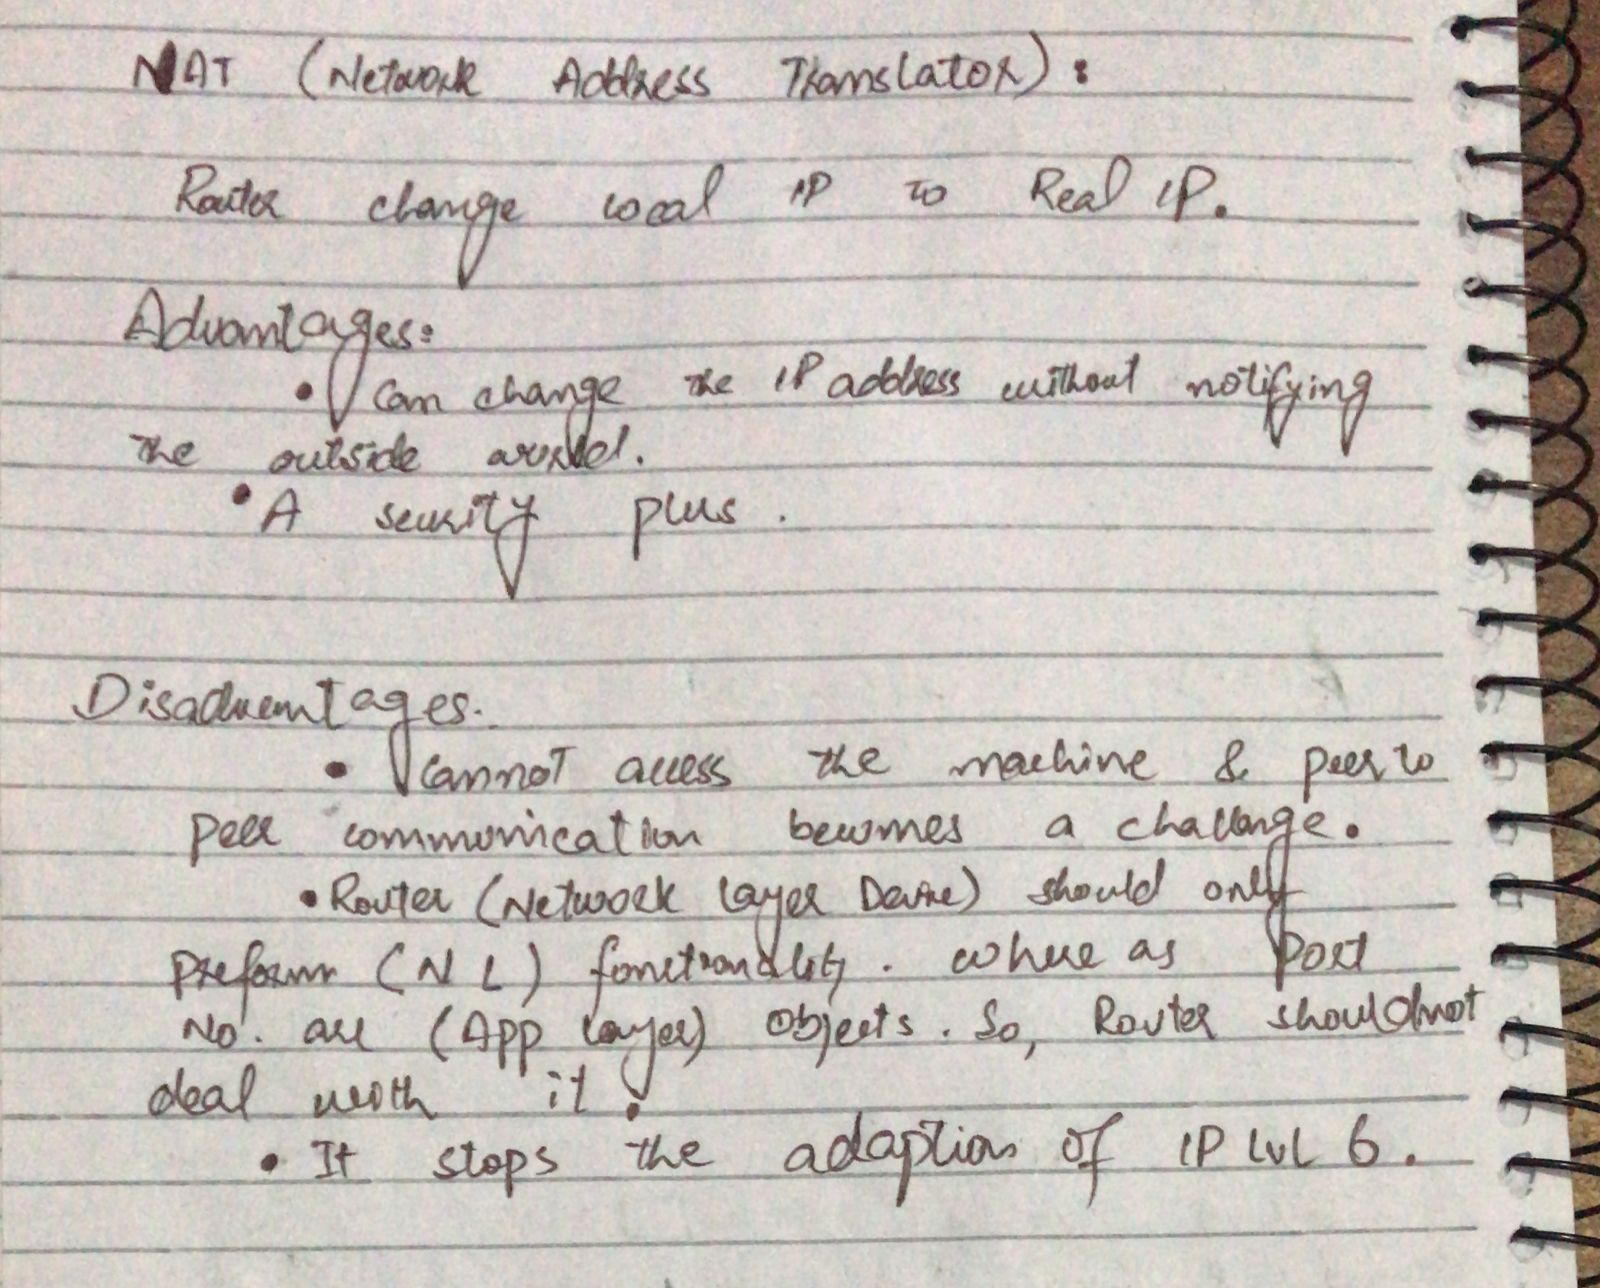 NAT (Network Address Translator):
Router change local IP to Real IP.
Advantages:
• Can change the IP address without notifying
the outside world.
• A security plus.
Disadvantages.
• Cannot access the machine & peer to
peer communication becomes a challange.
• Router (Network layer Device) should only
preform (NL) functionality. where as Port
No. are (App layer) Objects. So, Router should not
deal with it.
• It stops the adaption of IP lvl 6.